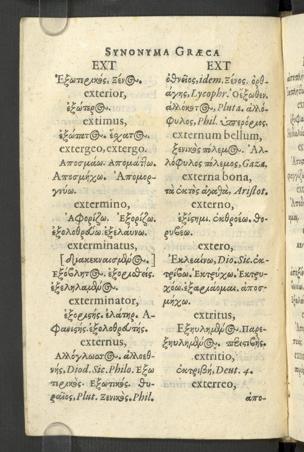 SYNONYMA GRÆCA
EXT
Ἐξωτερικὸς, Ξένος.
exterior,
ἐξώτερος.
extimus,
ἐξώτατος. ἔσχατος.
extergeo, extergo.
Ἀποσμάω. Ἀπομάττω.
Ἀποσμήχω. Ἀπομοργνύω.
extermino,
Ἀφορίζω. Ἐξορίζω.
ἐξολοθρεύω. ἐξελαύνω.
exterminatus,
Ἐξόβλητος. ἐξορισθείς.
ἐξεληλαμένος.
exterminator,
ἐξοριστής. ἐλατήρ. Ἀφανιστής. ἐξολοθρευτής.
externus,
Ἀλλόγλωσσος. ἀλλοεθνής, Diod. Sic. Philo. Ἐξωτερικὸς. Ἐξωτικὸς. θυραῖος, Plut. Ξενικὸς. Phil.
EXT
ὀθνεῖος, idem. Ξένος.
Lycophr. Ὁ ἔξωθεν.
ἀλλόκοτος, Pluta. ἀλλόφυλος, Phil. Ὑπερόριος.
externum bellum,
ξενικὸς πόλεμος. Ἀλλόφυλος πόλεμος, Gaza.
externa bona,
τὰ ἐκτὸς ἀγαθὰ, Aristot.
externo,
ἐξίστημι. ἐκθροέω. θορυβέω.
extero,
Ἐκλεαίνω, Dio. Sic. ἐκτρίβω. Ἐκτρύχω.
extritus,
extritio,
ἐκτριβή, Deut. 4.
exterreo,
ἀπο-